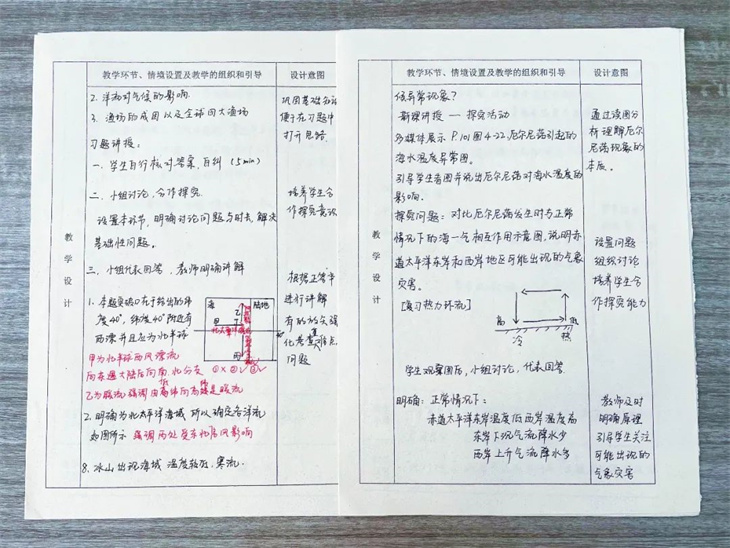 教学环节、情境设置及教学的组织和引导
设计意图
教学设计
2. 洋流对气候的影响
3. 渔场的成因以及全球四大渔场
习题讲授:
一、学生自行核对答案,自纠(5min)
二、小组讨论,合作探究
设置本环节,明确讨论问题与时长,解决
基础性问题。
三、小组代表回答,教师明确讲解
1. 本题突破口在于给出的纬
度40°,纬度40°附近有
西漂并且应为北半球
海
陆地
甲
乙
丙
甲为北半球西风漂流
向东遇大陆后向南、北分支
①× ②√ ③√
乙为暖流 强调由高纬向高纬是暖流
2. 明确为北太平洋海域 所以确定各洋流
如图所示 强调丙处受东北信风影响
8. 冰山出现海域 温度较低,寒流.
巩固基础知识
便于在习题中
打开思路
培养学生合
作探究意识
根据正答率
进行讲解
有的放矢强
化重难点
问题
教学环节、情境设置及教学的组织和引导
设计意图
教学设计
候异常现象?
新课讲授 — 探究活动
多媒体展示 P.101图4-22厄尔尼诺引起的
海水温度异常图.
引导学生看图并说出厄尔尼诺对海水温度的
影响.
探究问题:对比厄尔尼诺发生时与正常
情况下的海—气相互作用示意图,说明赤
道太平洋东岸和西岸地区可能出现的气象
灾害.
[复习热力环流]
高
低
冷
热
学生观察图后,小组讨论,代表回答.
明确:正常情况下:
赤道太平洋东岸温度低 西岸温度高
东岸下沉气流降水少
西岸上升气流降水多
通过读图分
析理解厄尔
尼诺现象的
本质.
设置问题
组织讨论
培养学生合
作探究能力
教师及时
明确原理
引导学生关注
可能出现的
气象灾害